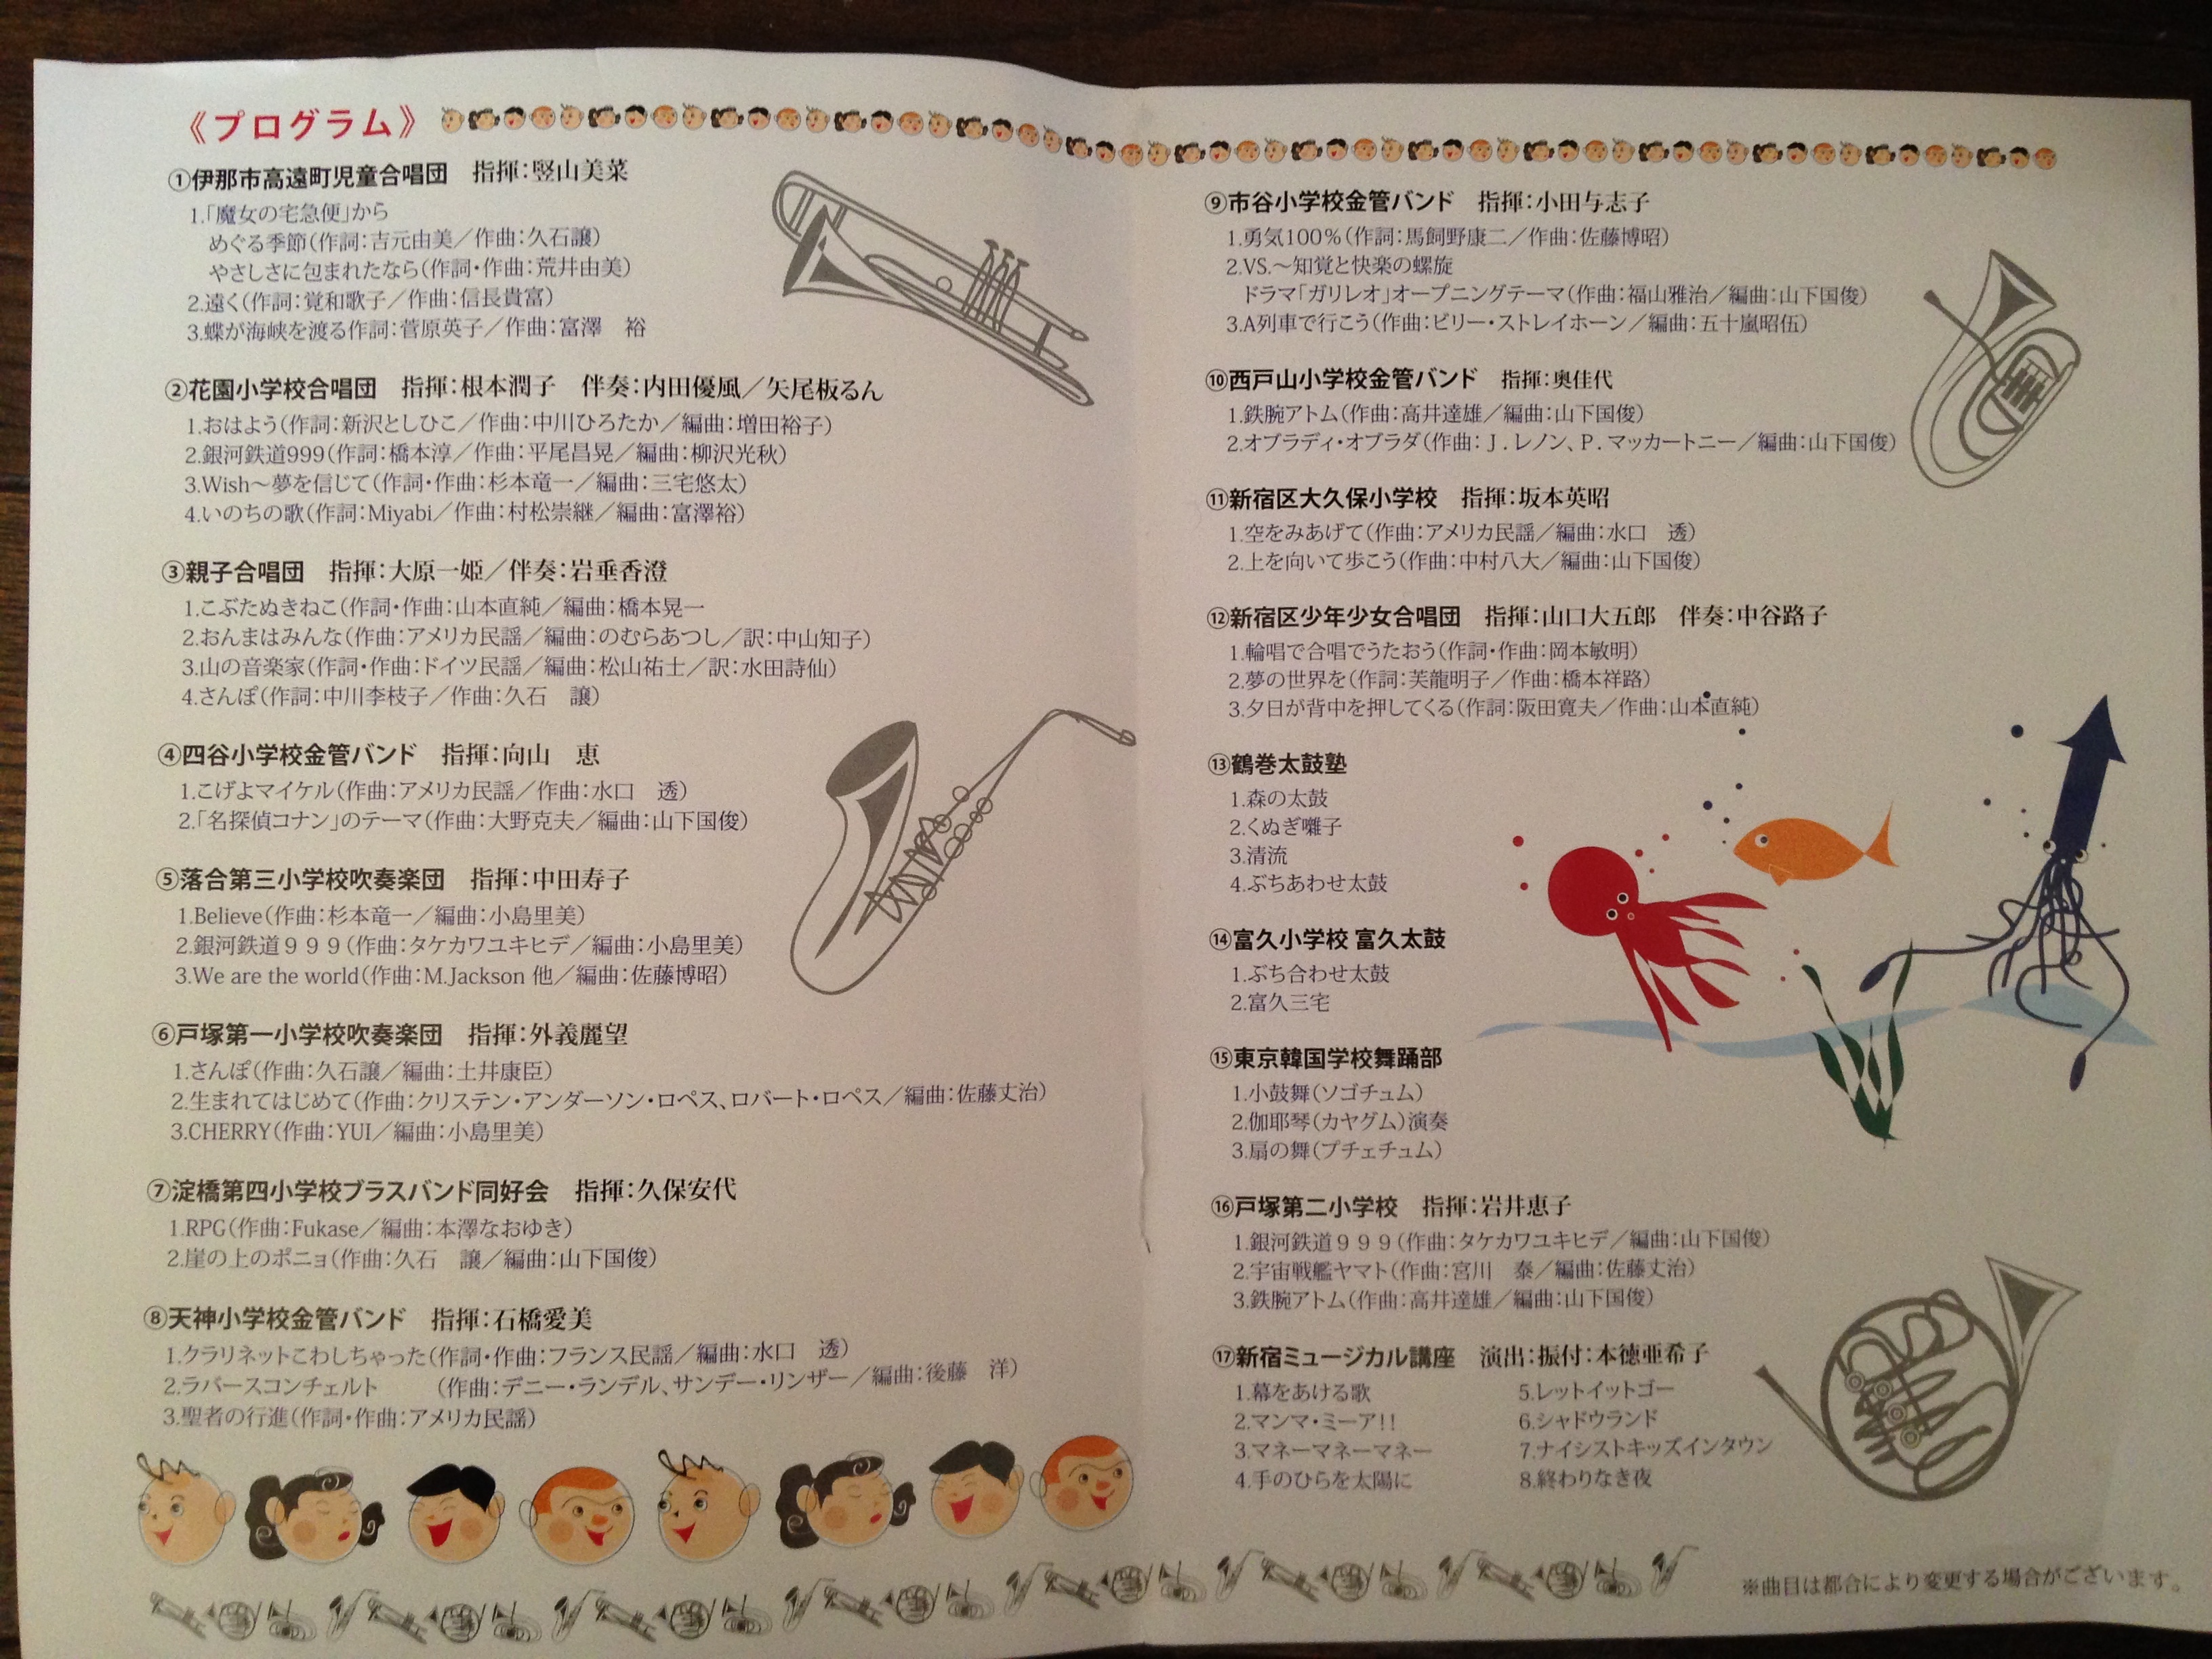 《プログラム》
①伊那市高遠町児童合唱団　指揮：竪山美菜
1.「魔女の宅急便」から
めぐる季節（作詞：吉元由美／作曲：久石譲）
やさしさに包まれたなら（作詞・作曲：荒井由美）
2.遠く（作詞：覚和歌子／作曲：信長貴富）
3.蝶が海峡を渡る作詞：菅原英子／作曲：富澤　裕
②花園小学校合唱団　指揮：根本潤子　伴奏：内田優風／矢尾板るん
1.おはよう（作詞：新沢としひこ／作曲：中川ひろたか／編曲：増田裕子）
2.銀河鉄道999（作詞：橋本淳／作曲：平尾昌晃／編曲：柳沢光秋）
3.Wish～夢を信じて（作詞・作曲：杉本竜一／編曲：三宅悠太）
4.いのちの歌（作詞：Miyabi／作曲：村松崇継／編曲：富澤裕）
③親子合唱団　指揮：大原一姫／伴奏：岩垂香澄
1.こぶたぬきねこ（作詞・作曲：山本直純／編曲：橋本晃一
2.おんまはみんな（作曲：アメリカ民謡／編曲：のむらあつし／訳：中山知子）
3.山の音楽家（作詞・作曲：ドイツ民謡／編曲：松山祐士／訳：水田詩仙）
4.さんぽ（作詞：中川李枝子／作曲：久石　譲）
④四谷小学校金管バンド　指揮：向山　恵
1.こげよマイケル（作曲：アメリカ民謡／作曲：水口　透）
2.「名探偵コナン」のテーマ（作曲：大野克夫／編曲：山下国俊）
⑤落合第三小学校吹奏楽団　指揮：中田寿子
1.Believe（作曲：杉本竜一／編曲：小島里美）
2.銀河鉄道９９９（作曲：タケカワユキヒデ／編曲：小島里美）
3.We are the world（作曲：M.Jackson 他／編曲：佐藤博昭）
⑥戸塚第一小学校吹奏楽団　指揮：外義麗望
1.さんぽ（作曲：久石譲／編曲：土井康臣）
2.生まれてはじめて（作曲：クリステン・アンダーソン・ロペス、ロバート・ロペス／編曲：佐藤丈治）
3.CHERRY（作曲：YUI／編曲：小島里美）
⑦淀橋第四小学校ブラスバンド同好会　指揮：久保安代
1.RPG（作曲：Fukase／編曲：本澤なおゆき）
2.崖の上のポニョ（作曲：久石　譲／編曲：山下国俊）
⑧天神小学校金管バンド　指揮：石橋愛美
1.クラリネットこわしちゃった（作詞・作曲：フランス民謡／編曲：水口　透）
2.ラバースコンチェルト　　（作曲：デニー・ランデル、サンデー・リンザー／編曲：後藤　洋）
3.聖者の行進（作詞・作曲：アメリカ民謡）
⑨市谷小学校金管バンド　指揮：小田与志子
1.勇気100％（作詞：馬飼野康二／作曲：佐藤博昭）
2.VS.～知覚と快楽の螺旋
ドラマ「ガリレオ」オープニングテーマ（作曲：福山雅治／編曲：山下国俊）
3.A列車で行こう（作曲：ビリー・ストレイホーン／編曲：五十嵐昭伍）
⑩西戸山小学校金管バンド　指揮：奥佳代
1.鉄腕アトム（作曲：高井達雄／編曲：山下国俊）
2.オブラディ・オブラダ（作曲：Ｊ．レノン、Ｐ．マッカートニー／編曲：山下国俊）
⑪新宿区大久保小学校　指揮：坂本英昭
1.空をみあげて（作曲：アメリカ民謡／編曲：水口　透）
2.上を向いて歩こう（作曲：中村八大／編曲：山下国俊）
⑫新宿区少年少女合唱団　指揮：山口大五郎　伴奏：中谷路子
1.輪唱で合唱でうたおう（作詞・作曲：岡本敏明）
2.夢の世界を（作詞：芙龍明子／作曲：橋本祥路）
3.夕日が背中を押してくる（作詞：阪田寛夫／作曲：山本直純）
⑬鶴巻太鼓塾
1.森の太鼓
2.くぬぎ囃子
3.清流
4.ぶちあわせ太鼓
⑭富久小学校 富久太鼓
1.ぶち合わせ太鼓
2.富久三宅
⑮東京韓国学校舞踊部
1.小鼓舞（ソゴチュム）
2.伽耶琴（カヤグム）演奏
3.扇の舞（プチェチュム）
⑯戸塚第二小学校　指揮：岩井恵子
1.銀河鉄道９９９（作曲：タケカワユキヒデ／編曲：山下国俊）
2.宇宙戦艦ヤマト（作曲：宮川　泰／編曲：佐藤丈治）
3.鉄腕アトム（作曲：高井達雄／編曲：山下国俊）
⑰新宿ミュージカル講座　演出：振付：本徳亜希子
1.幕をあける歌
2.マンマ・ミーア!!
3.マネーマネーマネー
4.手のひらを太陽に
5.レットイットゴー
6.シャドウランド
7.ナイシストキッズインタウン
8.終わりなき夜
※曲目は都合により変更する場合がございます。